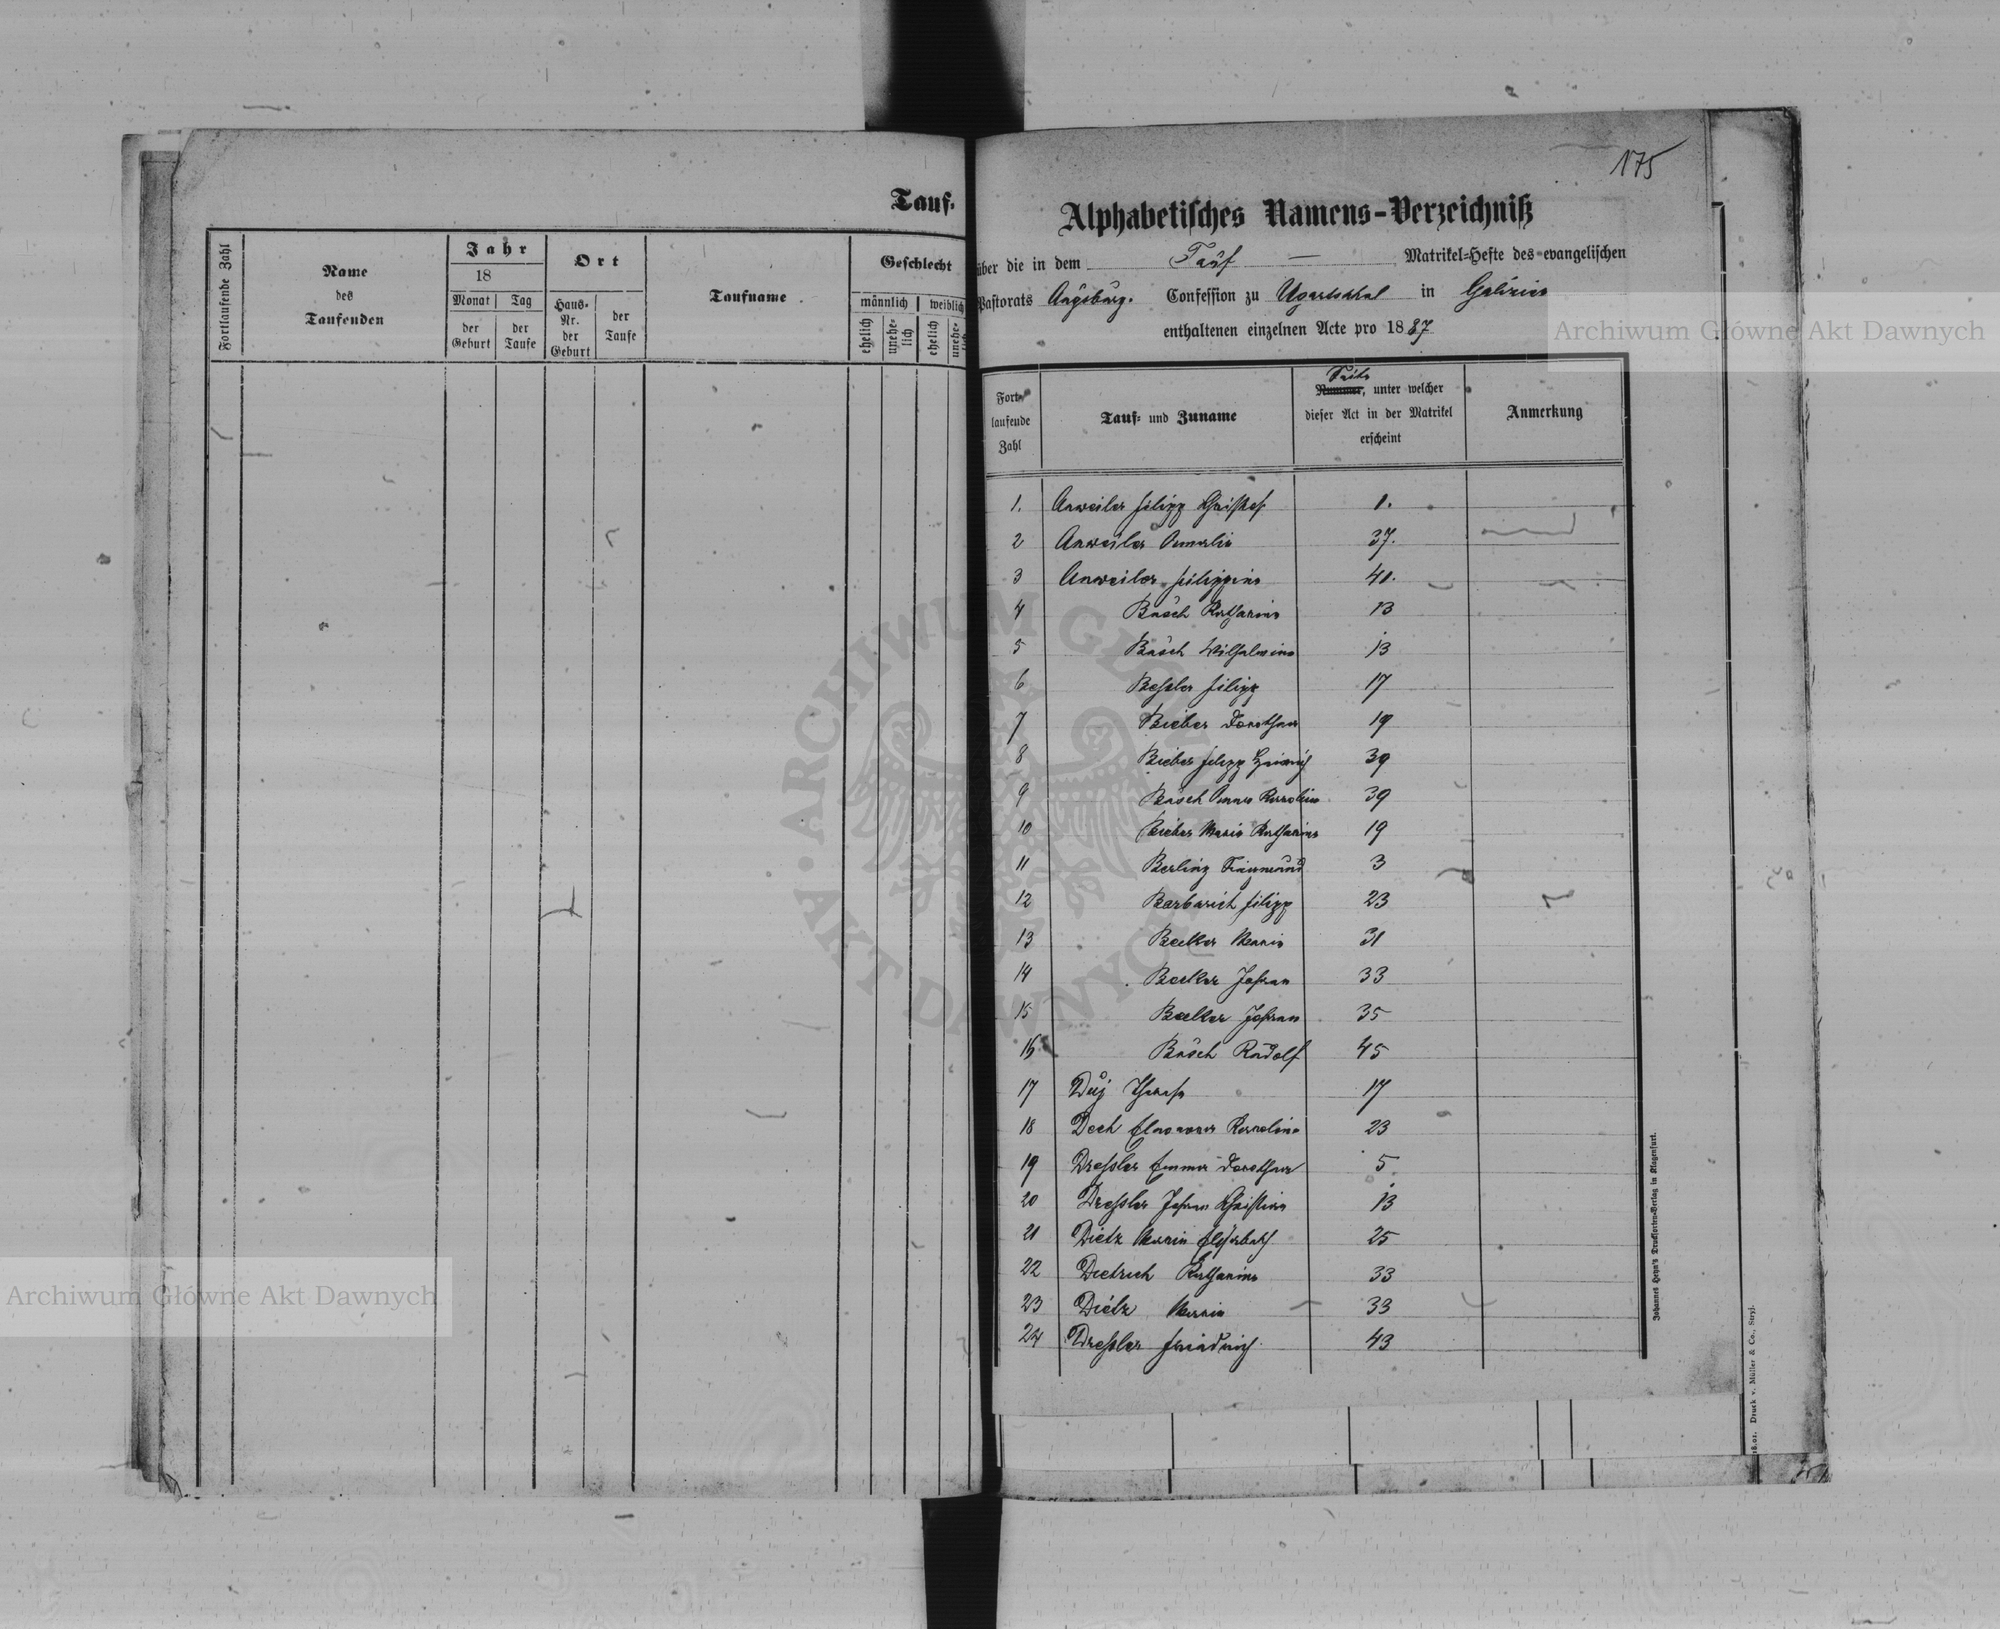 Tauf-
Fortlaufende Zahl
Name
des
Taufenden
Jahr
18
Monat
Tag
der
Geburt
der
Taufe
Ort
Haus-
Nr.
der
Geburt
der
Taufe
Taufname
Geschlecht
männlich
weiblich
ehelich
unehe-
lich
ehelich
unehe-
175
Alphabetisches Namens-Verzeichniß
über die in dem Tauf Matrikel-Hefte des evangelischen
Pastorats Augsburg. Confession zu Ugartsthal in Galizien
enthaltenen einzelnen Acte pro 1887
Fort-
laufende
Zahl
Tauf- und Zuname
Seite
Nummer, unter welcher
dieser Act in der Matrikel
erscheint
Anmerkung
1. Anweiler Filipp Christof 1.
2 Anweiler Amalia 37.
3 Anweiler Filippina 41.
4 Bäsch Katharina 13
5 Bäsch Wilhelmina 13
6 Beßler Filipp 17
7 Bieber Dorothea 19
8 Bieber Filipp Heinrich 39
9 Bäsch Anna Karolina 39
10 Bieber Maria Katharina 19
11 Berlinz Siegmund 3
12 Barbarich Filipp 23
13 Becker Maria 31
14 Becker Johan 33
15 Becker Johan 35
16 Bäsch Rudolf 45
17 Duj 17
18 Dech Eleonora Karolina 23
19 Dreßler Emma Dorothea 5
20 Dreßler Johan Christian 13
21 Dietz Maria Elisabeth 25
22 Dietrich Katharina 33
23 Dietz Maria 33
24 Dreßler Friedrich 43
Johannes Heyn's Drucksorten-Verlag in Klagenfurt.
18.01. Druck v. Müller & Co., Stryj.
Archiwum Główne Akt Dawnych
Archiwum Główne Akt Dawnych
ARCHIWUM GŁÓWNE AKT DAWNYCH